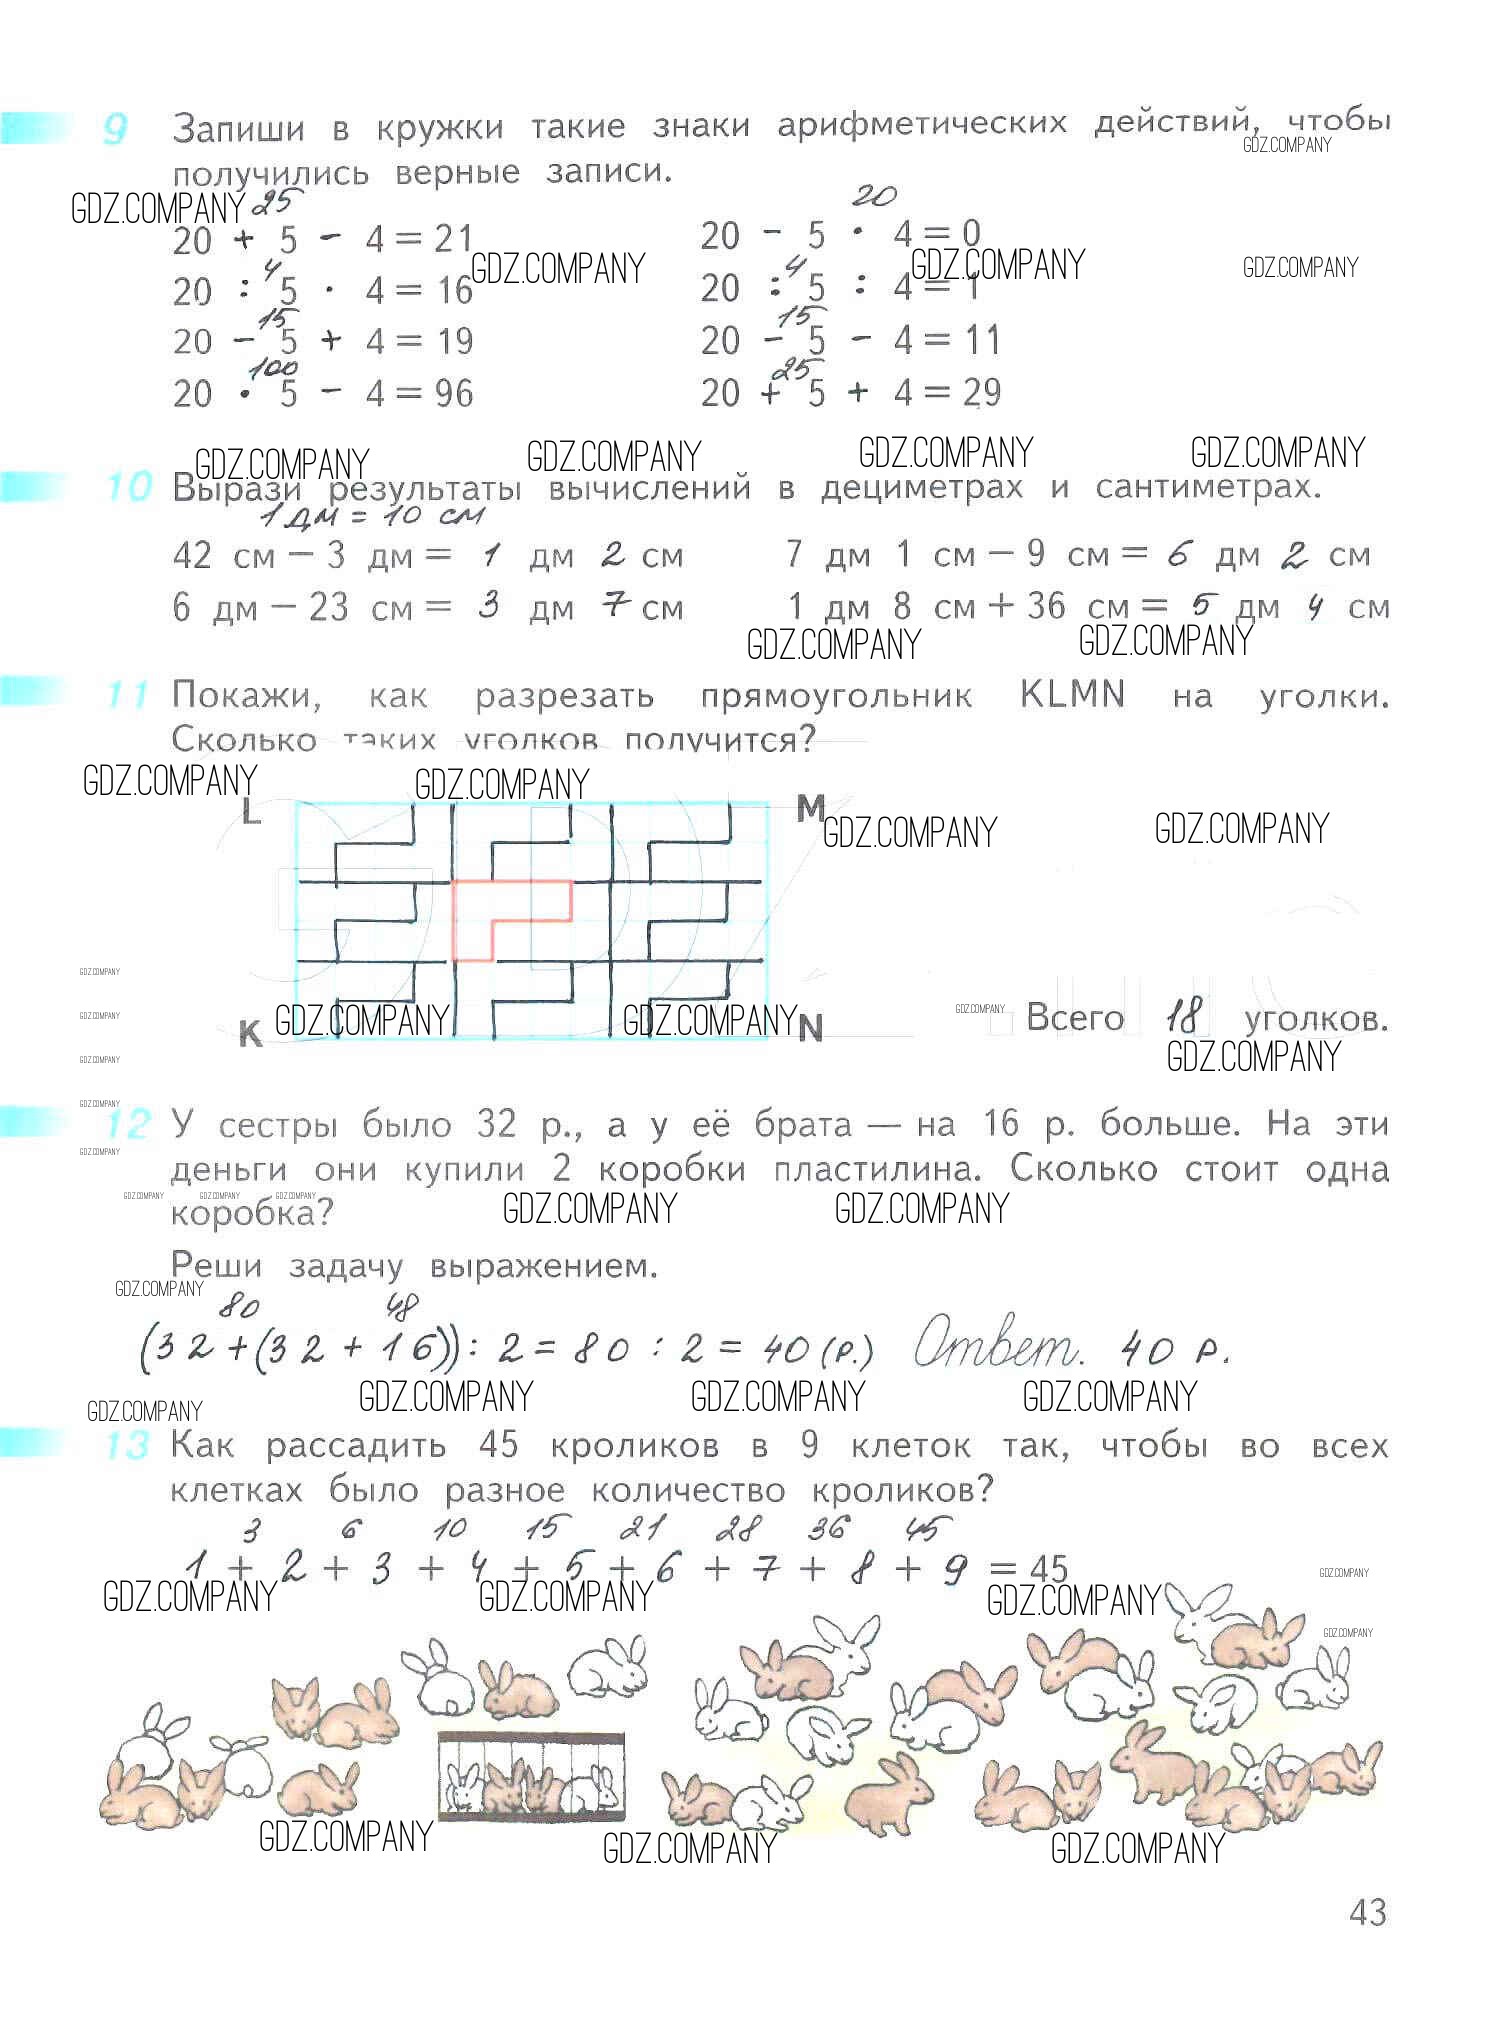 9 Запиши в кружки такие знаки арифметических действий, чтобы
GDZ.COMPANY
получились верные записи.
GDZ.COMPANY 25 20
20 + 5 - 4 = 21 20 - 5 · 4 = 0
GDZ.COMPANY GDZ.COMPANY GDZ.COMPANY
4 4
20 : 5 · 4 = 16 20 : 5 : 4 = 1
15 15
20 - 5 + 4 = 19 20 - 5 - 4 = 11
100 25
20 · 5 - 4 = 96 20 + 5 + 4 = 29
GDZ.COMPANY GDZ.COMPANY GDZ.COMPANY GDZ.COMPANY
10 Вырази результаты вычислений в дециметрах и сантиметрах.
1 дм = 10 см
42 см — 3 дм = 1 дм 2 см 7 дм 1 см — 9 см = 6 дм 2 см
6 дм — 23 см = 3 дм 7 см 1 дм 8 см + 36 см = 5 дм 4 см
GDZ.COMPANY GDZ.COMPANY
11 Покажи, как разрезать прямоугольник KLMN на уголки.
Сколько таких уголков получится?
GDZ.COMPANY GDZ.COMPANY
L M
GDZ.COMPANY GDZ.COMPANY
GDZ.COMPANY
GDZ.COMPANY GDZ.COMPANY
K GDZ.COMPANY GDZ.COMPANY N Всего 18 уголков.
GDZ.COMPANY
GDZ.COMPANY
GDZ.COMPANY
12 У сестры было 32 р., а у её брата — на 16 р. больше. На эти
GDZ.COMPANY
деньги они купили 2 коробки пластилина. Сколько стоит одна
GDZ.COMPANY GDZ.COMPANY GDZ.COMPANY GDZ.COMPANY GDZ.COMPANY
коробка?
Реши задачу выражением.
GDZ.COMPANY
80 48
(32+(32 + 16)) : 2 = 80 : 2 = 40 (р.) Ответ. 40 р.
GDZ.COMPANY GDZ.COMPANY GDZ.COMPANY GDZ.COMPANY
13 Как рассадить 45 кроликов в 9 клеток так, чтобы во всех
клетках было разное количество кроликов?
3 6 10 15 21 28 36 45
1 + 2 + 3 + 4 + 5 + 6 + 7 + 8 + 9 = 45
GDZ.COMPANY
GDZ.COMPANY GDZ.COMPANY GDZ.COMPANY
GDZ.COMPANY
GDZ.COMPANY GDZ.COMPANY GDZ.COMPANY
43